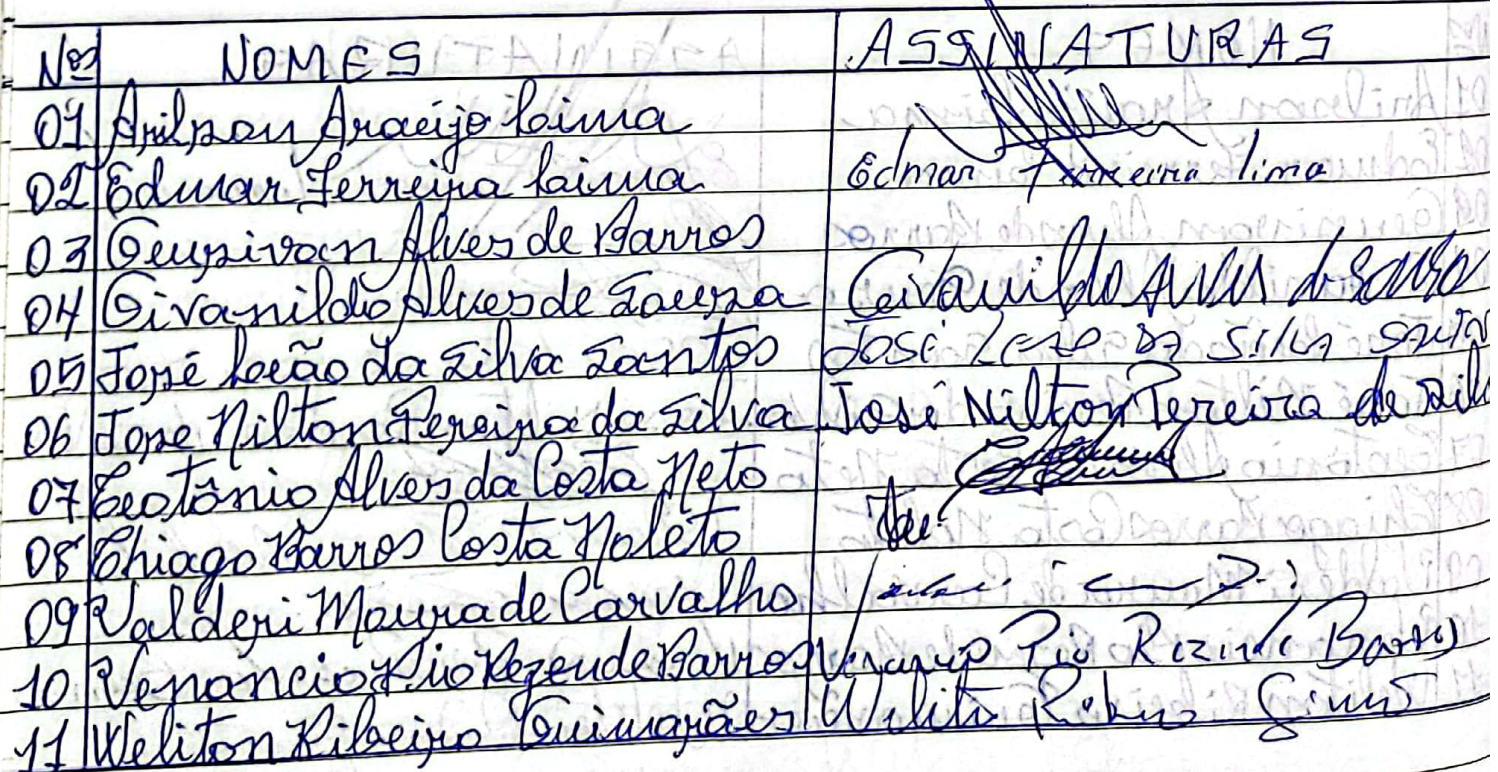 Nos NOMES ASSINATURAS
01 Arilson Araújo Lima
02 Edmar Ferreira Lima Edmar Ferreira lima
03 Geusivan Alves de Barros
04 Givanildo Alves de Souza Geivanildo Alves de Souza
05 José Leão da Silva Santos José Leao da Silva Santos
06 Jose Nilton Pereira da Silva José Nilton Pereira da Silv
07 Teotônio Alves da Costa Neto
08 Thiago Barros Costa Noleto
09 Valderi Moura de Carvalho
10 Venancio Pio Rezende Barros Venancio Pio Rezende Barros
11 Weliton Ribeiro Guimarães